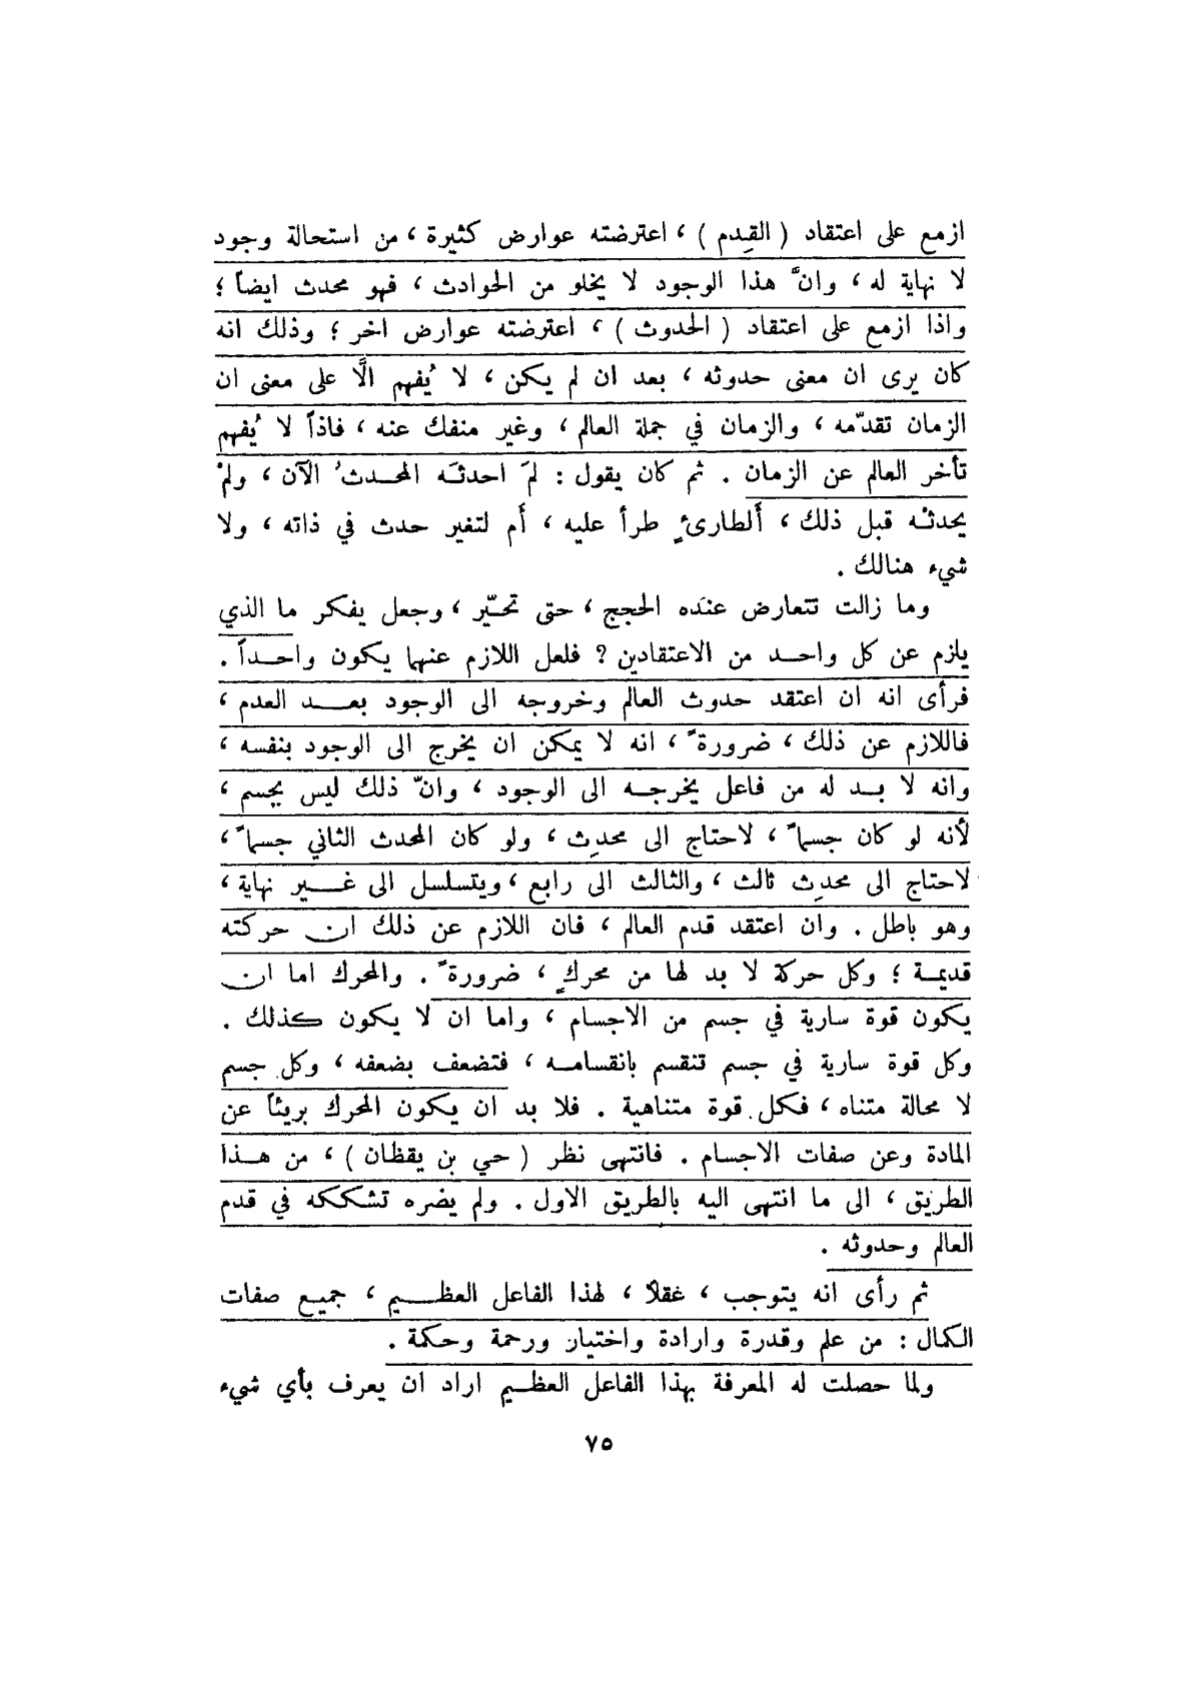 ازمع على اعتقاد ( القِدم ) ، اعترضته عوارض كثيرة ، من استحالة وجود
لا نهاية له ، وانَّ هذا الوجود لا يخلو من الحوادث ، فهو محدث ايضاً ؛
واذا ازمع على اعتقاد ( الحدوث ) ، اعترضته عوارض اخر ؛ وذلك انه
كان يرى ان معنى حدوثه ، بعد ان لم يكن ، لا يُفهم الَّا على معنى ان
الزمان تقدّمه ، والزمان في جملة العالم ، وغير منفك عنه ، فاذاً لا يُفهم
تأخر العالم عن الزمان . ثم كان يقول : لمَ احدثَه المحدثُ الآن ، ولمْ
يحدثْه قبل ذلك ، أَلطارئٍ طرأ عليه ، أَم لتغير حدث في ذاته ، ولا
شيء هنالك .
وما زالت تتعارض عندَه الحجج ، حتى تحيّر ، وجعل يفكر ما الذي
يلزم عن كل واحد من الاعتقادين ? فلعل اللازم عنهما يكون واحداً .
فرأى انه ان اعتقد حدوث العالم وخروجه الى الوجود بعد العدم ،
فاللازم عن ذلك ، ضرورةً ، انه لا يمكن ان يخرج الى الوجود بنفسه ،
وانه لا بد له من فاعل يخرجه الى الوجود ، وانّ ذلك ليس بجسم ،
لأنه لو كان جسماً ، لاحتاج الى محدِث ، ولو كان المحدث الثاني جسماً ،
لاحتاج الى محدِث ثالث ، والثالث الى رابع ، ويتسلسل الى غير نهاية ،
وهو باطل . وان اعتقد قدم العالم ، فان اللازم عن ذلك ان حركته
قديمة ؛ وكل حركة لا بد لها من محركٍ ، ضرورةً . والمحرك اما ان
يكون قوة سارية في جسم من الاجسام ، واما ان لا يكون كذلك .
وكل قوة سارية في جسم تنقسم بانقسامه ، فتضعف بضعفه ، وكل جسم
لا محالة متناه ، فكل قوة متناهية . فلا بد ان يكون المحرك بريئاً عن
المادة وعن صفات الاجسام . فانتهى نظر ( حي بن يقظان ) ، من هذا
الطريق ، الى ما انتهى اليه بالطريق الاول . ولم يضره تشككه في قدم
العالم وحدوثه .
ثم رأى انه يتوجب ، عقلاً ، لهذا الفاعل العظيم ، جميع صفات
الكمال : من علم وقدرة وارادة واختيار ورحمة وحكمة .
ولما حصلت له المعرفة بهذا الفاعل العظيم اراد ان يعرف بأي شيء
٧٥